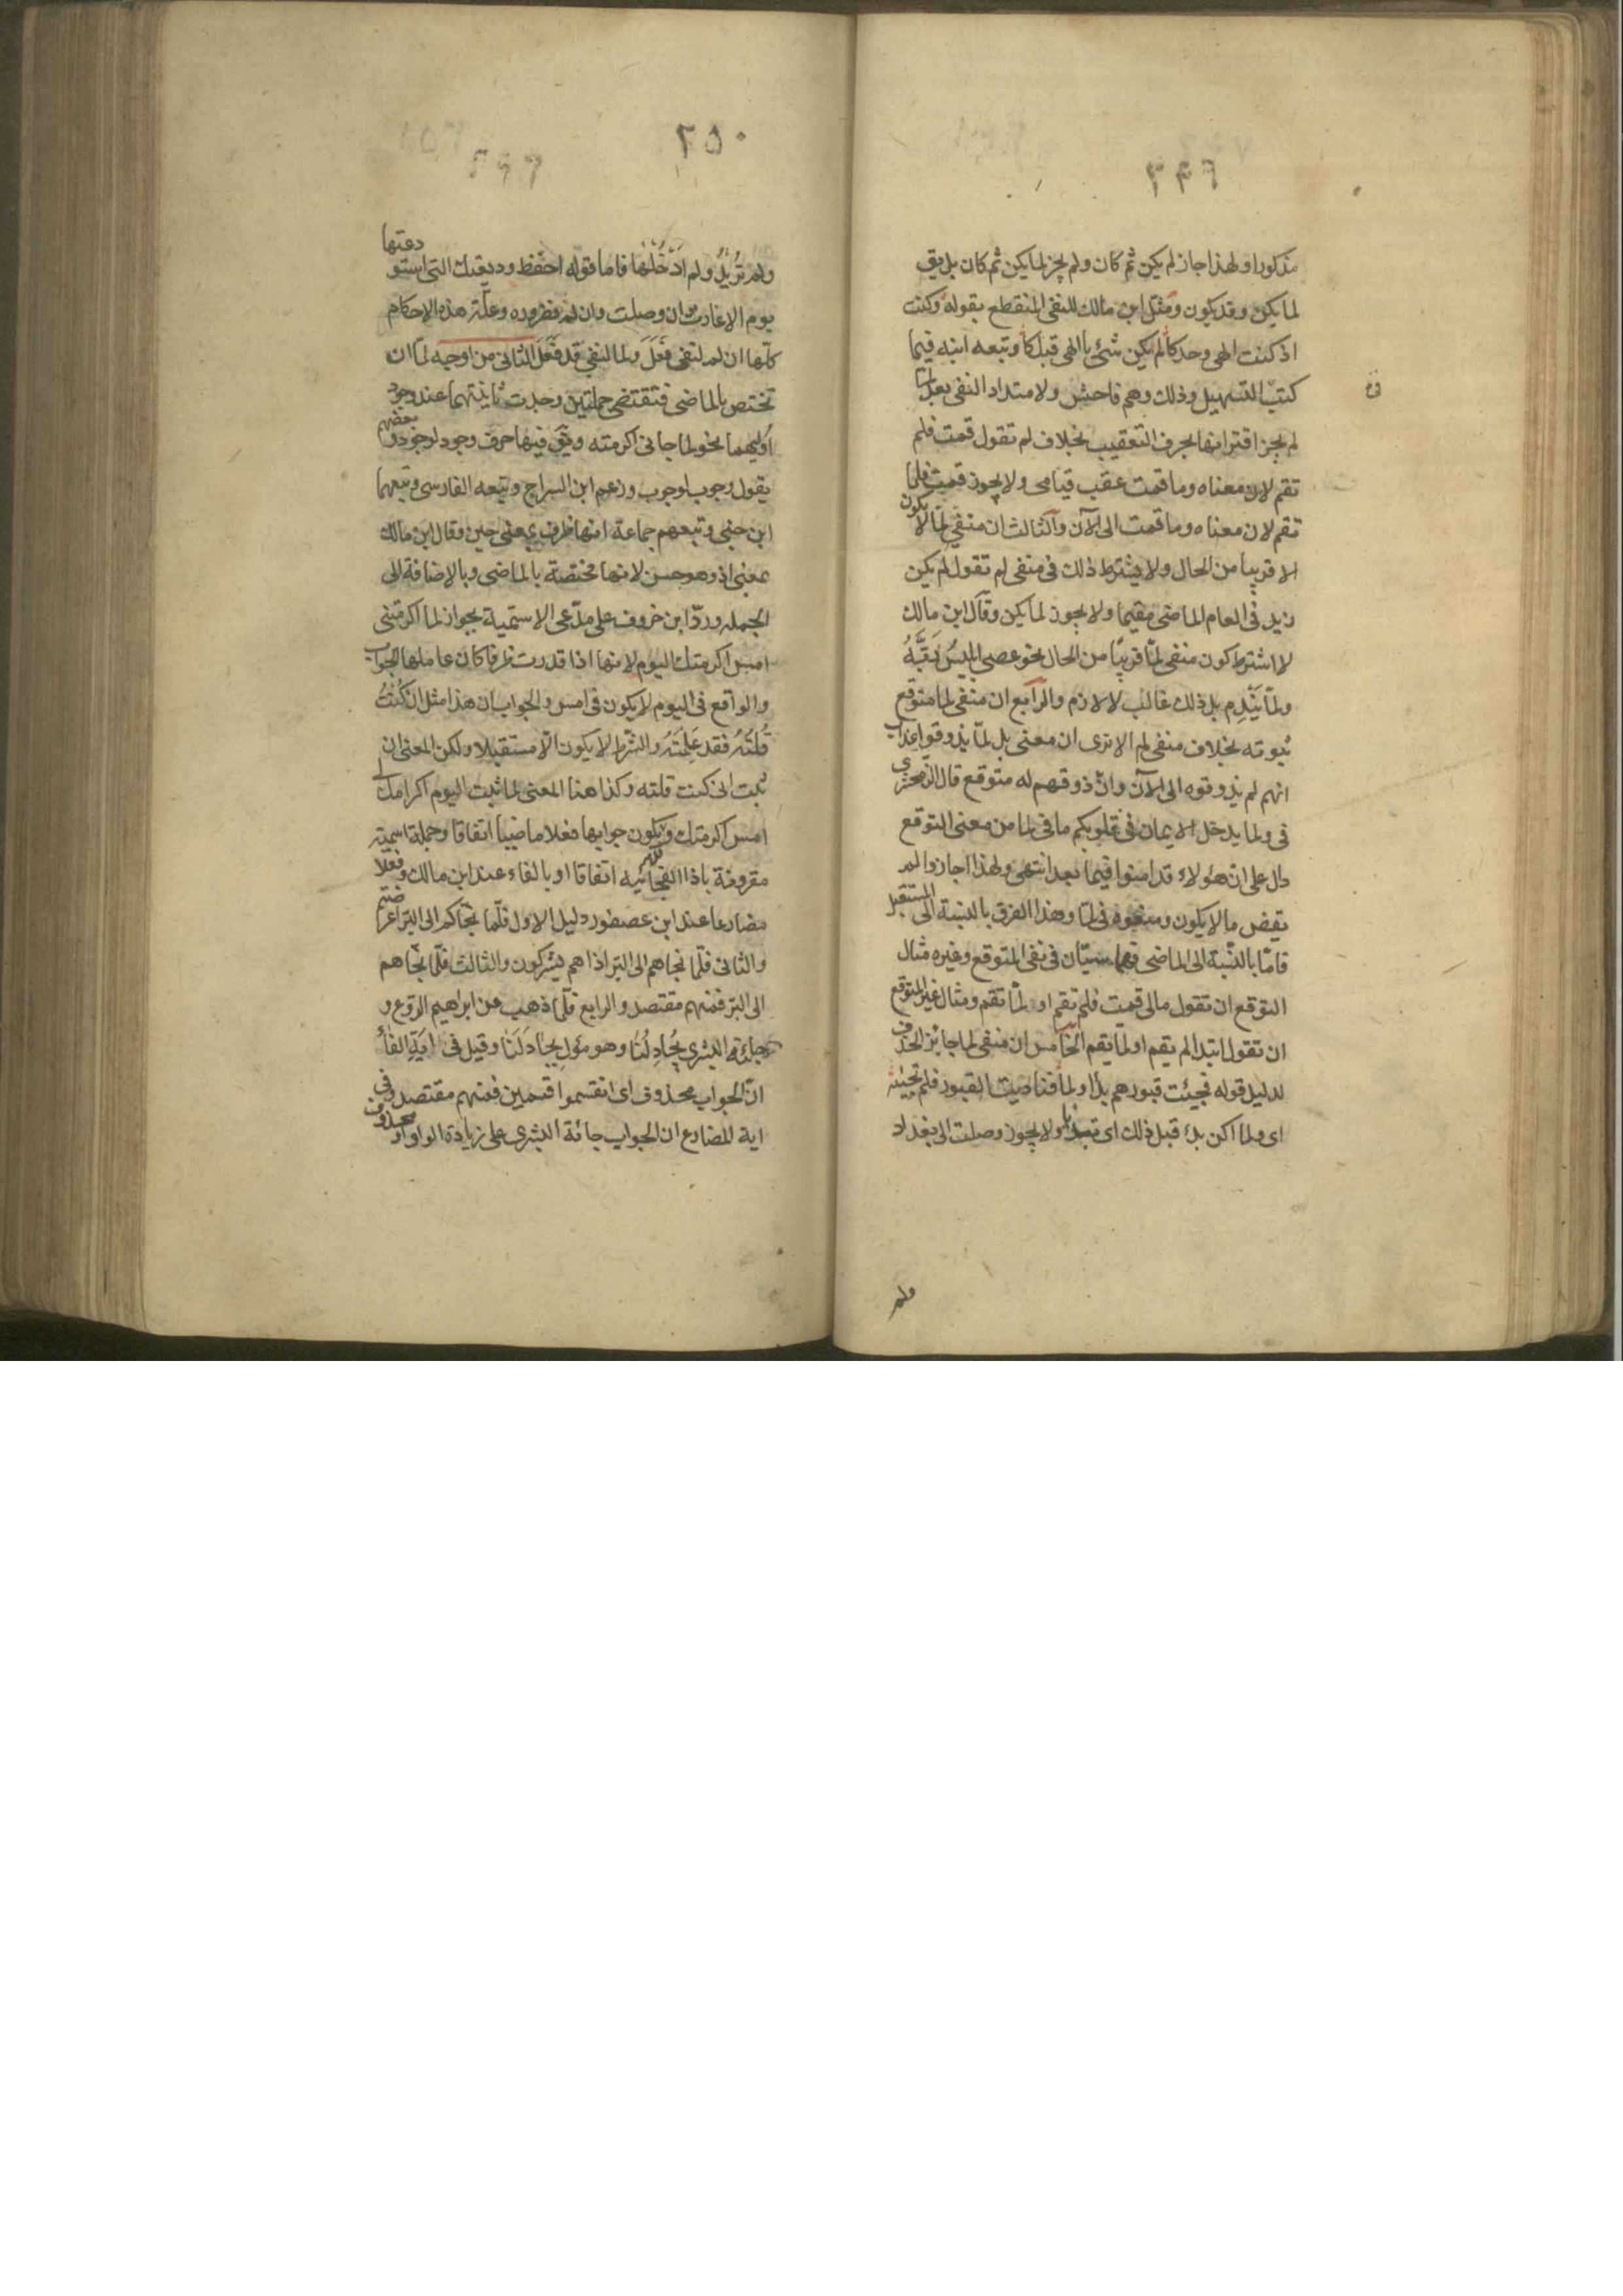 ٢٤٩
مذكورا ولهذا جاز لم يكن ثم كان ولم يجز لما يكن ثم كان بل يق
لما يكن وقد يكون ومثل ابن مالك للنفى المنقطع بقوله وكنت
اذ كنت الهى وحدكا لم يكن شئ يا الهى قبلكا وتبعه ابنه فيما
كتب التسهيل وذلك وهم فاحش ولامتداد النفى بعد لما
لم يجز اقترانها بحرف التعقيب بخلاف لم تقول قمت فلم
تقم لان معناه وما قمت عقب قيامى ولا يجوز قمت فلما
تقم لان معناه وما قمت الى الآن والثالث ان منفى لما لا يكون
الا قريبا من الحال ولا يشترط ذلك فى منفى لم تقول لم يكن
زيد فى العام الماضى مقيما ولا يجوز لما يكن وقال ابن مالك
لا اشترط كون منفى لما قريبا من الحال نحو عصى ابليس رَبَّهُ
ولما يَنْدِم بل ذلك غالب لا لازم والرابع ان منفى لما متوقع
ثبوته بخلاف منفى لم الا ترى ان معنى بل لما يذوقوا عذاب
انهم لم يذوقوه الى الآن وانّ ذوقهم له متوقع قال الزمخشرى
فى ولما يدخل الايمان فى قلوبكم ما فى لما من معنى التوقع
دال على انّ هؤلاء قد امنوا فيما بعد انتهى ولهذا اجازوا لم
يقض ما لا يكون ومنعوه فى لما وهذا الفرق بالنسبة الى المستقبل
فامّا بالنسبة الى الماضى فهما سيّان فى نفى المتوقع وغيره مثال
التوقع ان تقول مالى قمت فلم تقم او لما تقم ومثال غير المتوقع
ان تقول ابتدا لم يقم او لما يقم الخامس ان منفى لما جائز الحذف
لدليل قوله فجئت قبورهم بدأ ولما فناديت القبور فلم تجبنه
اى ولما اكن بدء قبل ذلك اى ولا يجوز وصلت الى بغداد
ولم
٢٥٠
ولم تُرِيدُ ولم ادْخُلْهَا فاما قوله احفظ وديعتك التى استودعتها
يوم الاعازب ان وصلت وان لم فضروره وعلّة هذه الاحكام
كلّها ان لم لنفى فَعَلَ ولما لنفى قد فَعَلَ الثانى من اوجه لمّا ان
تختص بالماضى فتقتضى جملتين وجدت ثانيتهما عند وجود
اوليهما نحو لما جانى اكرمته ويق فيها حرف وجود لوجود وبعضهم
يقول وجوب لوجوب وزعم ابن السراج وتبعه الفارسى وتبعهما
ابن جنى وتبعهم جماعة انها ظرف بمعنى حين وقال ابن مالك
بمعنى اذ وهو حسن لانها مختصة بالماضى وبالاضافة الى
الجمله وردّ ابن خروف على مدّعى الاسمية بجواز لما اكرمتنى
امس اكرمتك اليوم لانها اذا قدرت ظرفا كان عاملها الجواب
والواقع فى اليوم لا يكون فى امس والجواب ان هذا مثل ان كُنْتُ
قُلتَهُ فقد عَلِمْتَهُ والشرط لا يكون الّا مستقبلا ولكن المعنى ان
ثبت انى كنت قلته وكذا هنا المعنى لما ثبت اليوم اكرامك لى
امس اكرمتك ويكون جوابها فعلا ماضيا اتفاقا وجملة اسمية
مقرونة باذا الفجائيه اتفاقا او بالفاء عند ابن مالك وفعلا
مضارعا عند ابن عصفور دليل الاول فلمّا نجّاكم الى البر اعرضتم
والثانى فلمّا نجاهم الى البر اذا هم يشركون والثالث فلمّا نجّاهم
الى البر فمنهم مقتصد والرابع فلمّا ذهب عن ابراهيم الروع و
جاءته البشرى يُجادِلُنا وهو مؤل بجادَلَنا وقيل فى اية الفاء
انّ الجواب محذوف اى انقسموا قسمين فمنهم مقتصد وفى
اية المضارع ان الجواب جائة البشرى على زيادة الواو او محذوف